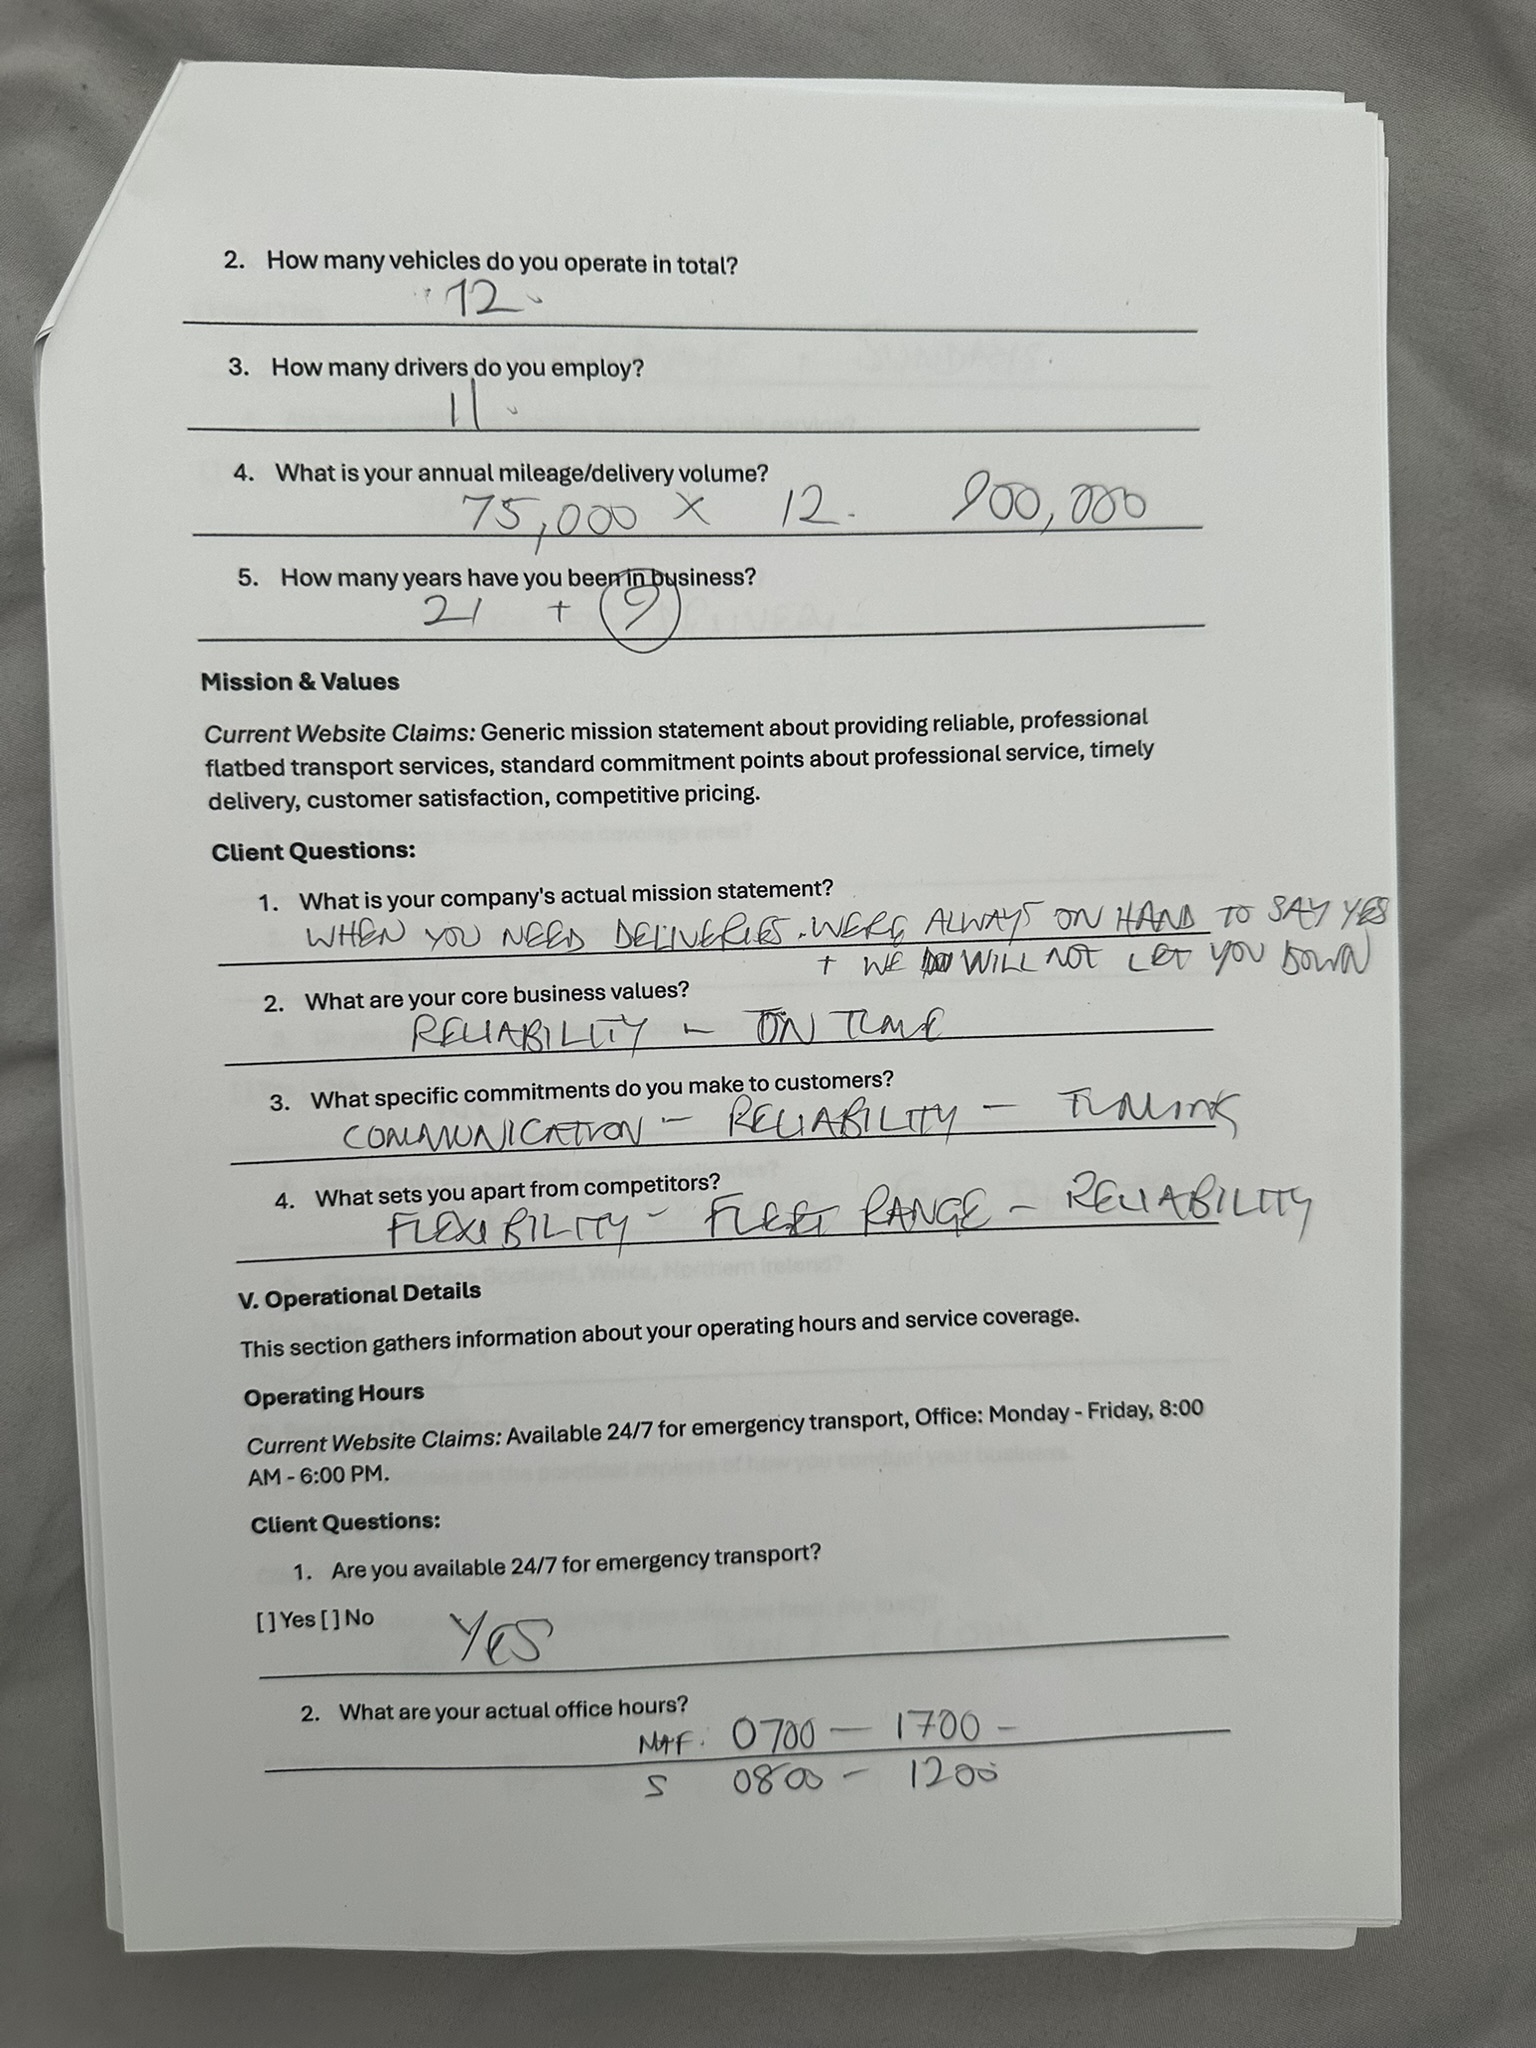 2. How many vehicles do you operate in total?
12
3. How many drivers do you employ?
11.
4. What is your annual mileage/delivery volume?
75,000 x 12. 900,000
5. How many years have you been in business?
21 + 9
Mission & Values
Current Website Claims: Generic mission statement about providing reliable, professional
flatbed transport services, standard commitment points about professional service, timely
delivery, customer satisfaction, competitive pricing.
Client Questions:
1. What is your company's actual mission statement?
WHEN YOU NEED DELIVERIES. WERE ALWAYS ON HAND TO SAY YES
+ WE WILL NOT LET YOU DOWN
2. What are your core business values?
RELIABILITY - ON TIME
3. What specific commitments do you make to customers?
COMMUNICATION - RELIABILITY - TIMING
4. What sets you apart from competitors?
FLEXIBILITY - FLEET RANGE - RELIABILITY
V. Operational Details
This section gathers information about your operating hours and service coverage.
Operating Hours
Current Website Claims: Available 24/7 for emergency transport, Office: Monday - Friday, 8:00
AM - 6:00 PM.
Client Questions:
1. Are you available 24/7 for emergency transport?
[ ] Yes [ ] No YES
2. What are your actual office hours?
0700 - 1700 -
S 0800 - 1200